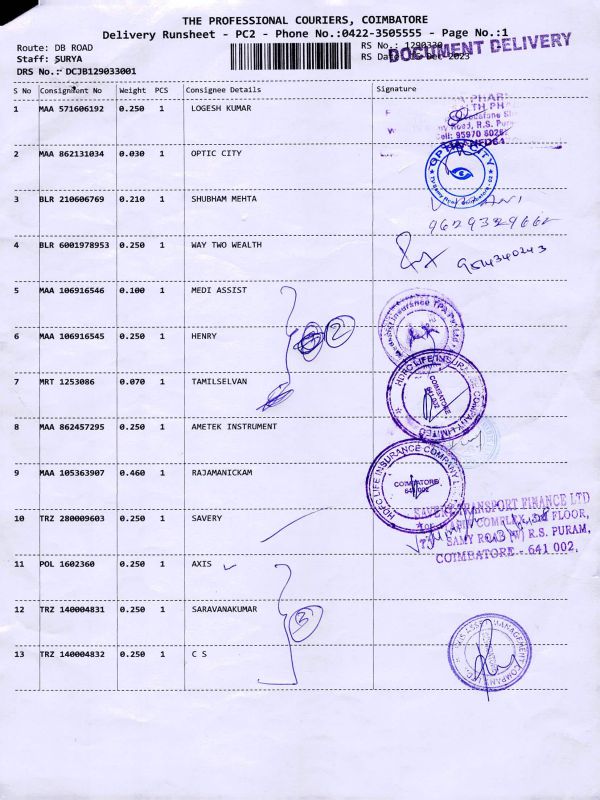 THE PROFESSIONAL COURIERS, COIMBATORE
Delivery Runsheet - PC2 - Phone No.:0422-3505555 - Page No.:1
Route: DB ROAD
RS No.: 1290330
DOCUMENT DELIVERY
Staff: SURYA
RS Date: Dec 2023
DRS No.: DCJB129033001
S No Consignment No Weight PCS Consignee Details Signature
1 MAA 571606192 0.250 1 LOGESH KUMAR
Road, R.S. Pura
Cell: 95970
2 MAA 862131034 0.030 1 OPTIC CITY
OPTIC CITY
3 BLR 210606769 0.210 1 SHUBHAM MEHTA
4 BLR 6001978953 0.250 1 WAY TWO WEALTH
9514340243
5 MAA 106916546 0.100 1 MEDI ASSIST
Insurance TPA Pvt Ltd
6 MAA 106916545 0.250 1 HENRY
2
7 MRT 1253086 0.070 1 TAMILSELVAN
HDFC LIFE INSURANCE COMPANY LIMITED
COIMBATORE
641 002
8 MAA 862457295 0.250 1 AMETEK INSTRUMENT
9 MAA 105363907 0.460 1 RAJAMANICKAM
HDFC LIFE INSURANCE COMPANY
COIMBATORE
641 002
10 TRZ 280009603 0.250 1 SAVERY
TRANSPORT FINANCE LTD
COMPLEX, FLOOR,
SAMY ROAD (W) R.S. PURAM,
COIMBATORE - 641 002.
11 POL 1602360 0.250 1 AXIS
12 TRZ 140004831 0.250 1 SARAVANAKUMAR
3
13 TRZ 140004832 0.250 1 C S
ASSET MANAGEMENT COMPANY LTD